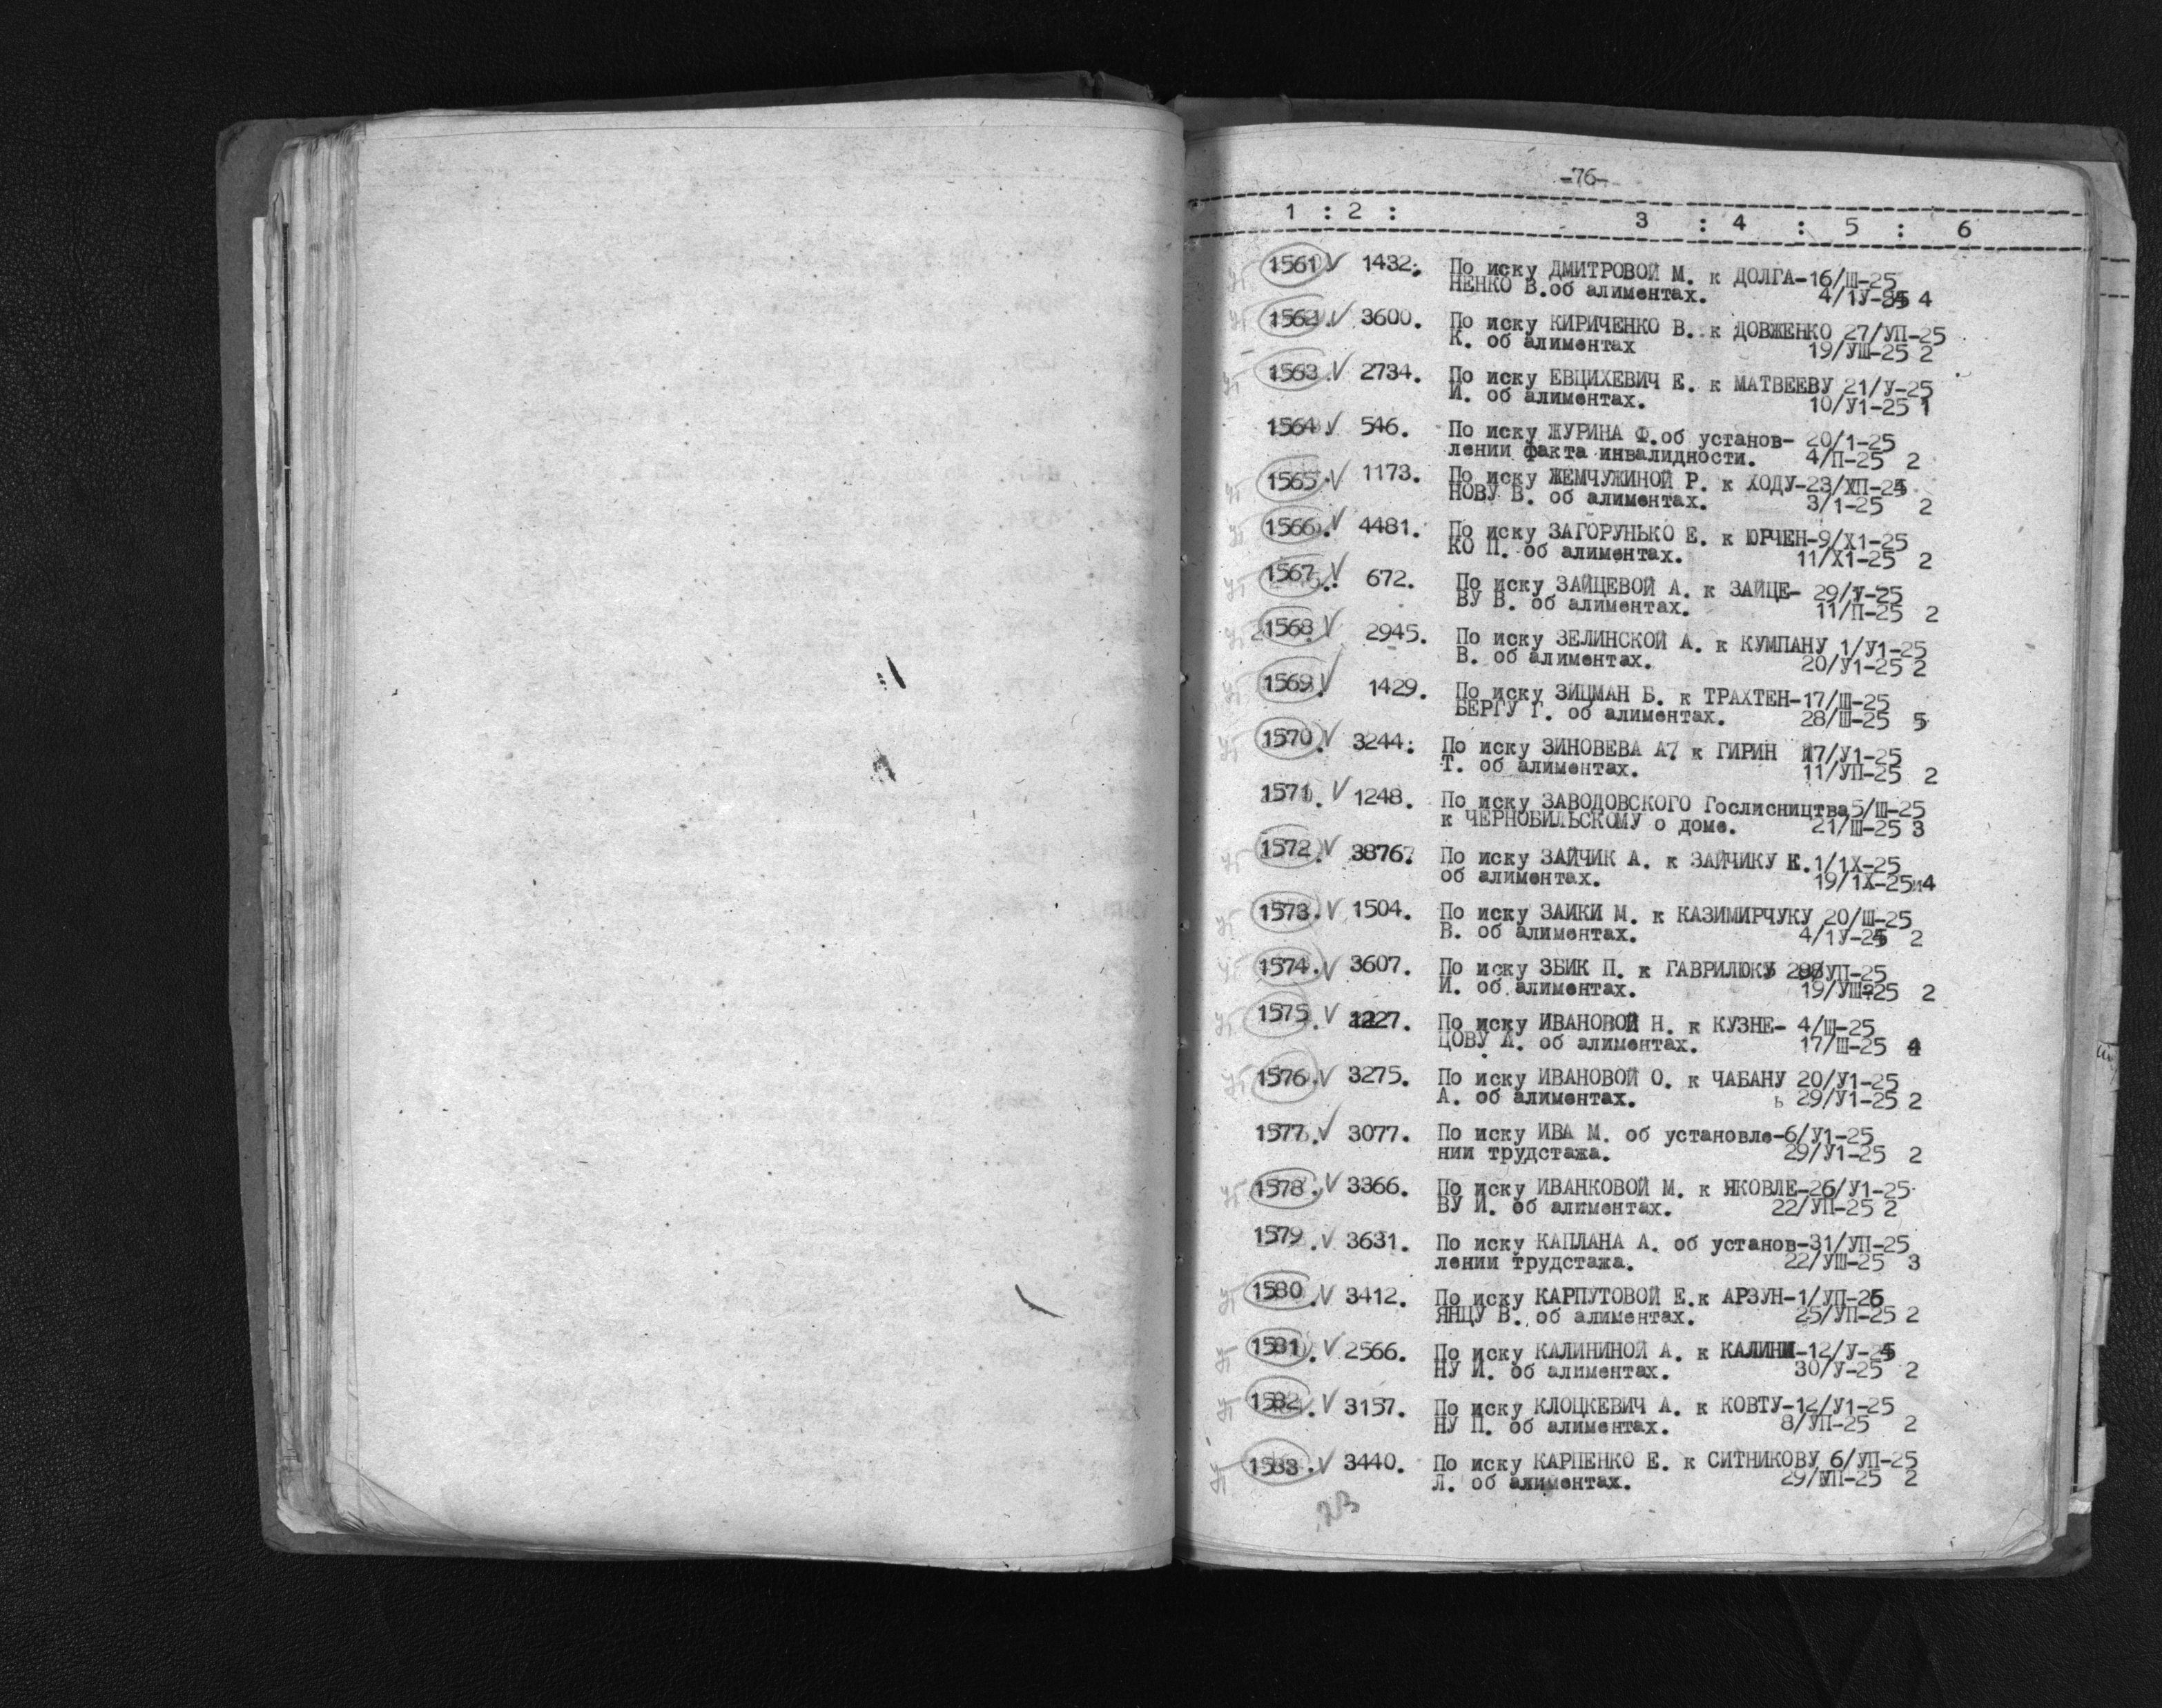 -76-
1 : 2 : 3 : 4 : 5 : 6
1561 V 1432. По иску ДМИТРОВОЙ М. к ДОЛГА-16/Ш-25
НЕНКО В.об алиментах. 4/1У-25 4
1562. V 3600. По иску КИРИЧЕНКО В. к ДОВЖЕНКО 27/УП-25
К. об алиментах 19/УШ-25 2
1563. V 2734. По иску ЕВЦИХЕВИЧ Е. к МАТВЕЕВУ 21/У-25
И. об алиментах. 10/У1-25 1
1564. V 546. По иску ЖУРИНА Ф.об установ- 20/1-25
лении факта инвалидности. 4/П-25 2
1565. V 1173. По иску ЖЕМЧУЖИНОЙ Р. к ХОДУ-23/ХП-24
НОВУ В. об алиментах. 3/1-25 2
1566. V 4481. По иску ЗАГОРУНЬКО Е. к ЮРЧЕН-9/Х1-25
КО П. об алиментах. 11/Х1-25 2
1567. V 672. По иску ЗАЙЦЕВОЙ А. к ЗАЙЦЕ- 29/У-25
ВУ В. об алиментах. 11/П-25 2
1568. V 2945. По иску ЗЕЛИНСКОЙ А. к КУМПАНУ 1/У1-25
В. об алиментах. 20/У1-25 2
1569. V 1429. По иску ЗИЦМАН Б. к ТРАХТЕН-17/Ш-25
БЕРГУ Г. об алиментах. 28/Ш-25 5
1570. V 3244: По иску ЗИНОВЕВА А7 к ГИРИН 17/У1-25
Т. об алиментах. 11/УП-25 2
1571. V 1248. По иску ЗАВОДОВСКОГО Гослисництва5/Ш-25
к ЧЕРНОБИЛЬСКОМУ о доме. 21/Ш-25 3
1572. V 38767 По иску ЗАЙЧИК А. к ЗАЙЧИКУ Е.1/1Х-25
об алиментах. 19/1Х-25 4
1573. V 1504. По иску ЗАИКИ М. к КАЗИМИРЧУКУ 20/Ш-25
В. об алиментах. 4/1У-25 2
1574. V 3607. По иску ЗБИК П. к ГАВРИЛЮКУ 28/УП-25
И. об алиментах. 19/УШ-25 2
1575. V 1227. По иску ИВАНОВОЙ Н. к КУЗНЕ- 4/Ш-25
ЦОВУ А. об алиментах. 17/Ш-25 4
1576. V 3275. По иску ИВАНОВОЙ О. к ЧАБАНУ 20/У1-25
А. об алиментах. ь 29/У1-25 2
1577. V 3077. По иску ИВА М. об установле-6/У1-25
нии трудстажа. 29/У1-25 2
1578. V 3366. По иску ИВАНКОВОЙ М. к ЯКОВЛЕ-26/У1-25
ВУ И. об алиментах. 22/УП-25 2
1579. V 3631. По иску КАПЛАНА А. об установ-31/УП-25
лении трудстажа. 22/УШ-25 3
1580. V 3412. По иску КАРПУТОВОЙ Е.к АРЗУН-1/УП-25
ЯНЦУ В. об алиментах. 25/УП-25 2
1581. V 2566. По иску КАЛИНИНОЙ А. к КАЛИНИ-12/У-25
НУ И. об алиментах. 30/У-25 2
1582. V 3157. По иску КЛОЦКЕВИЧ А. к КОВТУ-12/У1-25
НУ П. об алиментах. 8/УП-25 2
1583. V 3440. По иску КАРПЕНКО Е. к СИТНИКОВУ 6/УП-25
Л. об алиментах. 29/УП-25 2
23